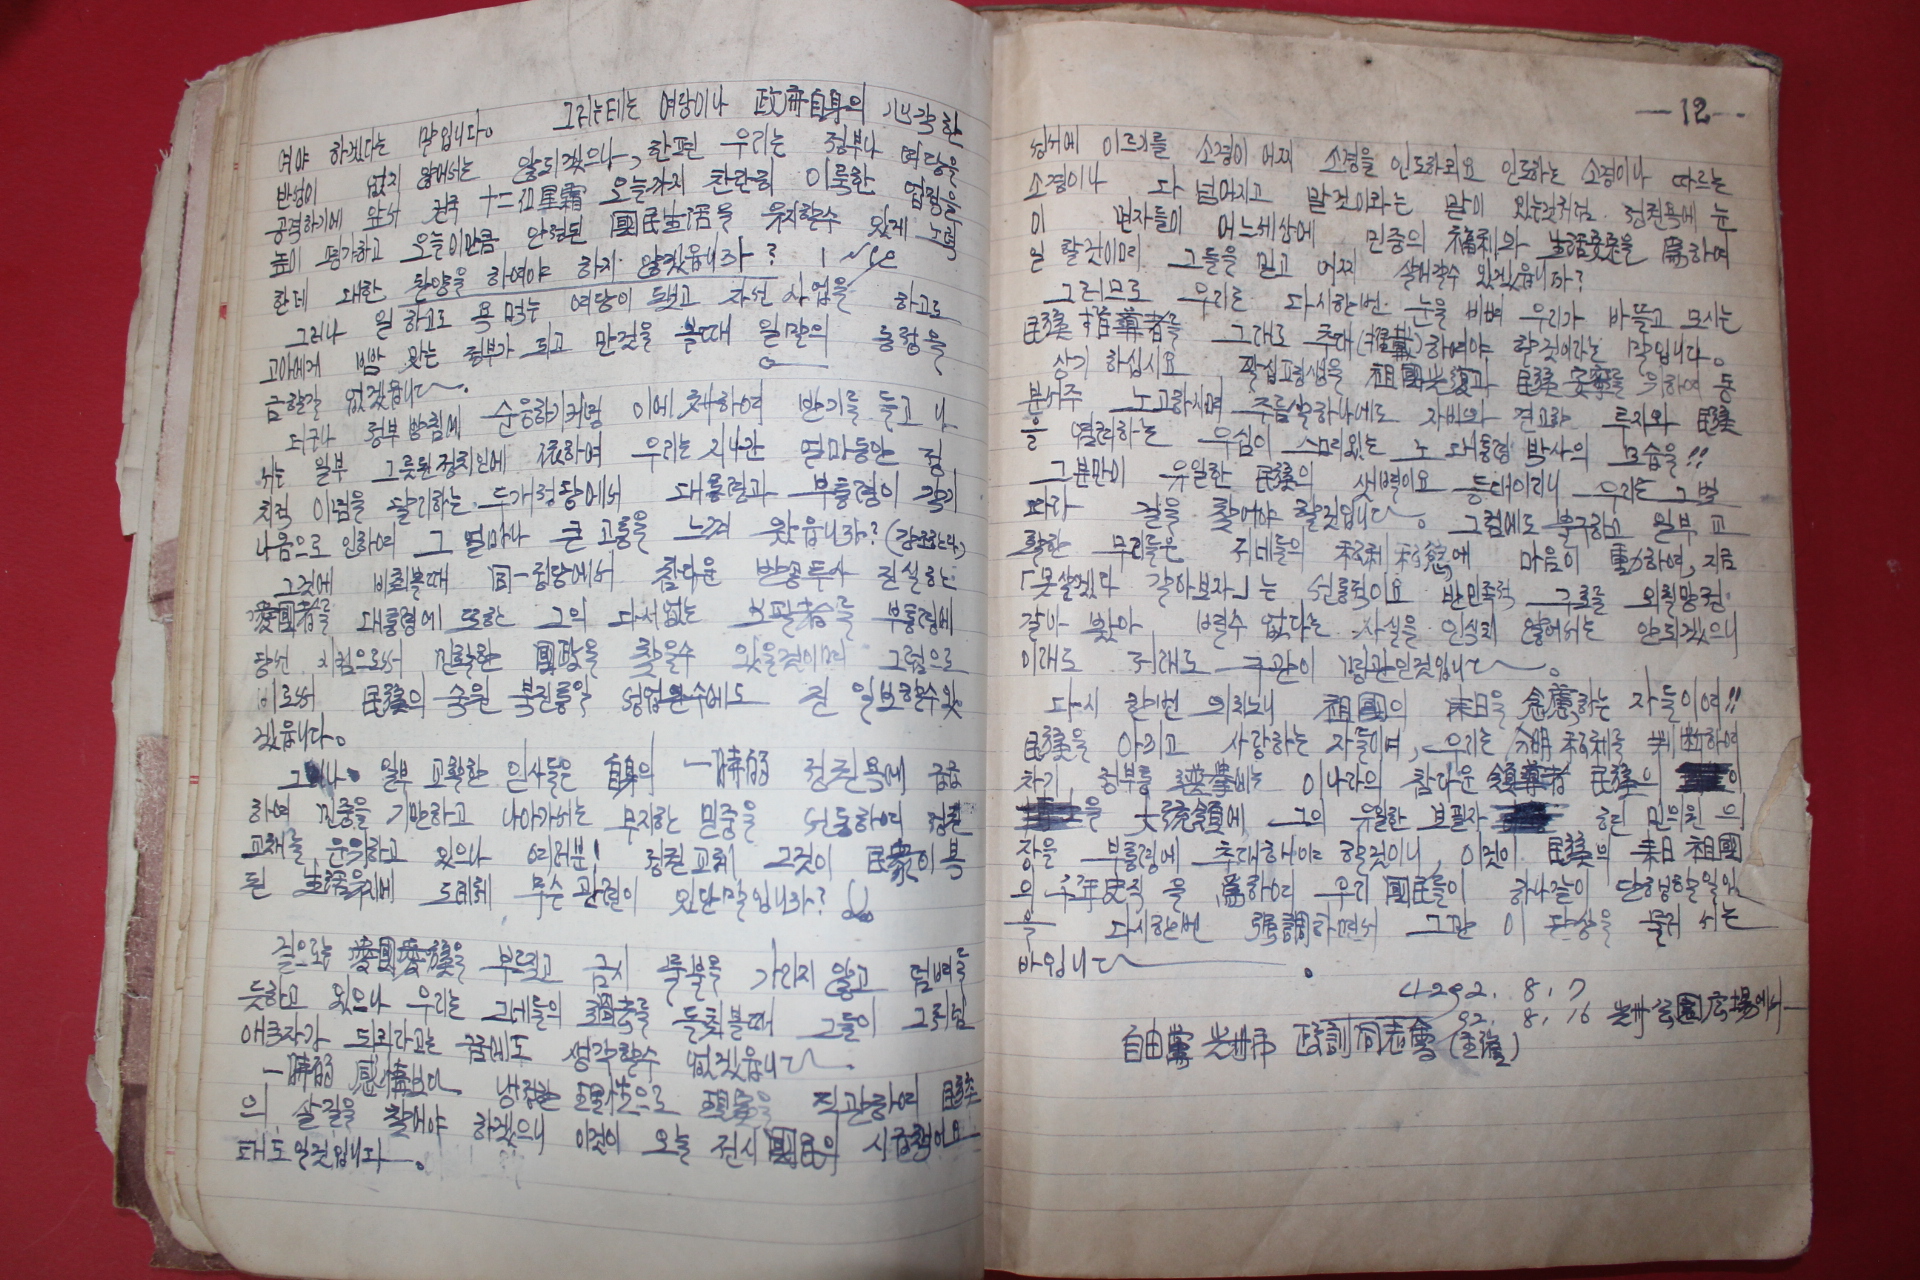 여야 하겠다는 말입니다。 그러는데는 여당이나 政府自身의 心각한
반성이 없지 않어서는 않되겠으나, 한편 우리는 정부나 여당을
공격하기에 앞서 건국 十二 星霜 오늘까지 찬란히 이룩한 업적을
높이 평가하고 오늘이만큼 안정된 國民生活을 유지할수 있게 노력
한데 대한 찬양을 하여야 하지 않겠읍니까?
그러나 일하고도 욕먹는 여당이 되고 자선사업을 하고도
고아에게 뺨 맞는 정부가 되고 만것을 볼때 일말의 동정을
금할길 없겠읍니다.
더구나 정부방침에 순응하기커녕 이에 對하여 반기를 들고 나
서는 일부 그릇된 정치인에 依하여 우리는 지나간 얼마동안 정
치적 이념을 달리하는 두개정당에서 대통령과 부통령이 각기
나옴으로 인하여 그 얼마나 큰 고통을 느껴 왔읍니까?
그것에 비춰볼때 同一정당에서 참다운 반공투사 진실한
愛國者를 대통령에 또한 그의 다시없는 보필者를 부통령에
당선 시킴으로써 원활한 國政을 찾을수 있을것이며 그럼으로
비로써 民族의 숙원 북진통일 성업완수에도 진일보할수 있
겠읍니다。
그러나 일부 교활한 인사들은 自身의 一時的 정권욕에 급급
하여 민중을 기만하고 나아가서는 무지한 민중을 선동하여 정권
교체를 운위하고 있으나 여러분! 정권교체 그것이 民衆이 복
된 生活유지에 도대체 무슨 관련이 있단말입니까?
겉으로는 愛國愛族을 부르짖고 금시 뚝불을 가리지 않고 덤벼들
듯하고 있으나 우리는 그네들의 過去를 돌춰볼때 그들이 그처럼
애국자가 되리라고는 꿈에도 생각할수 없겠읍니다.
一時的 感情보다 냉정한 理性으로 現實을 직관하여 民族
의 살길을 찾어야 하겠으니 이것이 오늘 전시國民의 시급책이요
태도일것입니다.
—12—
성서에 이르기를 소경이 어찌 소경을 인도하리요 인도하는 소경이나 따르는
소경이나 다 넘어지고 말것이라는 말이 있는것처럼 정권욕에 눈
이 먼자들이 어느세상에 민중의 福利와 生活安定을 爲하여
일할것이며 그들을 믿고 어찌 살아갈수 있겠읍니까?
그러므로 우리는 다시한번 눈을 비벼 우리가 바뜰고 모시는
民族指導者를 그대로 추대(推戴)하여야 할것이라는 말입니다。
상기 하십시요 팔십평생을 祖國光復과 民族安寧을 위하여 동
분서주 노고하시며 주름살하나에도 자비와 견고한 투지와 民族
을 염려하는 우심이 스며있는 노 대통령 박사의 모습을!!
그분만이 유일한 民族의 샛별이요 등대이리니 우리는 그빛
따라 길을 찾어야 할것입니다。 그럼에도 불구하고 일부 교
활한 무리들은 저네들의 私利私慾에 마음이 動하여, 지금
「못살겠다 갈아보자」는 선동적이요 반민족적 구호를 외칠망정
갈아 봤자 별수 없다는 사실을 인식치 않어서는 안되겠으니
이래도 저래도 구관이 명관일것입니다。
다시 한번 외치노니 祖國의 來日을 念慮하는 자들이여!!
民族을 아끼고 사랑하는 자들이여, 우리는 公明 를 判斷하여
차기 정부통 選擧에는 이나라의 참다운 領導者 民族의 이
을 大統領에 그의 유일한 보필자 현 민의원 의
장을 부통령에 추대해야 할것이니, 이것이 民族의 來日 祖國
의 千年史직 을 爲하여 우리 國民들이 하나같이 단행할일임
을 다시한번 强調하면서 그만 이 단상을 물러 서는
바입니다。
4292. 8. 7
92. 8. 16 光州公園広場에서
自由黨 光州市 政訓同志會